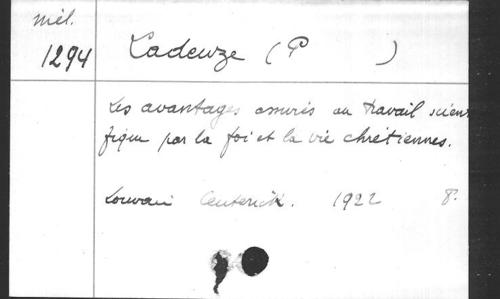 mél.
1294
Ladeuze (P )
Les avantages assurés au travail scien
fique par la foi et la vie chrétiennes.
Louvain Ceuterick. 1922 8°.